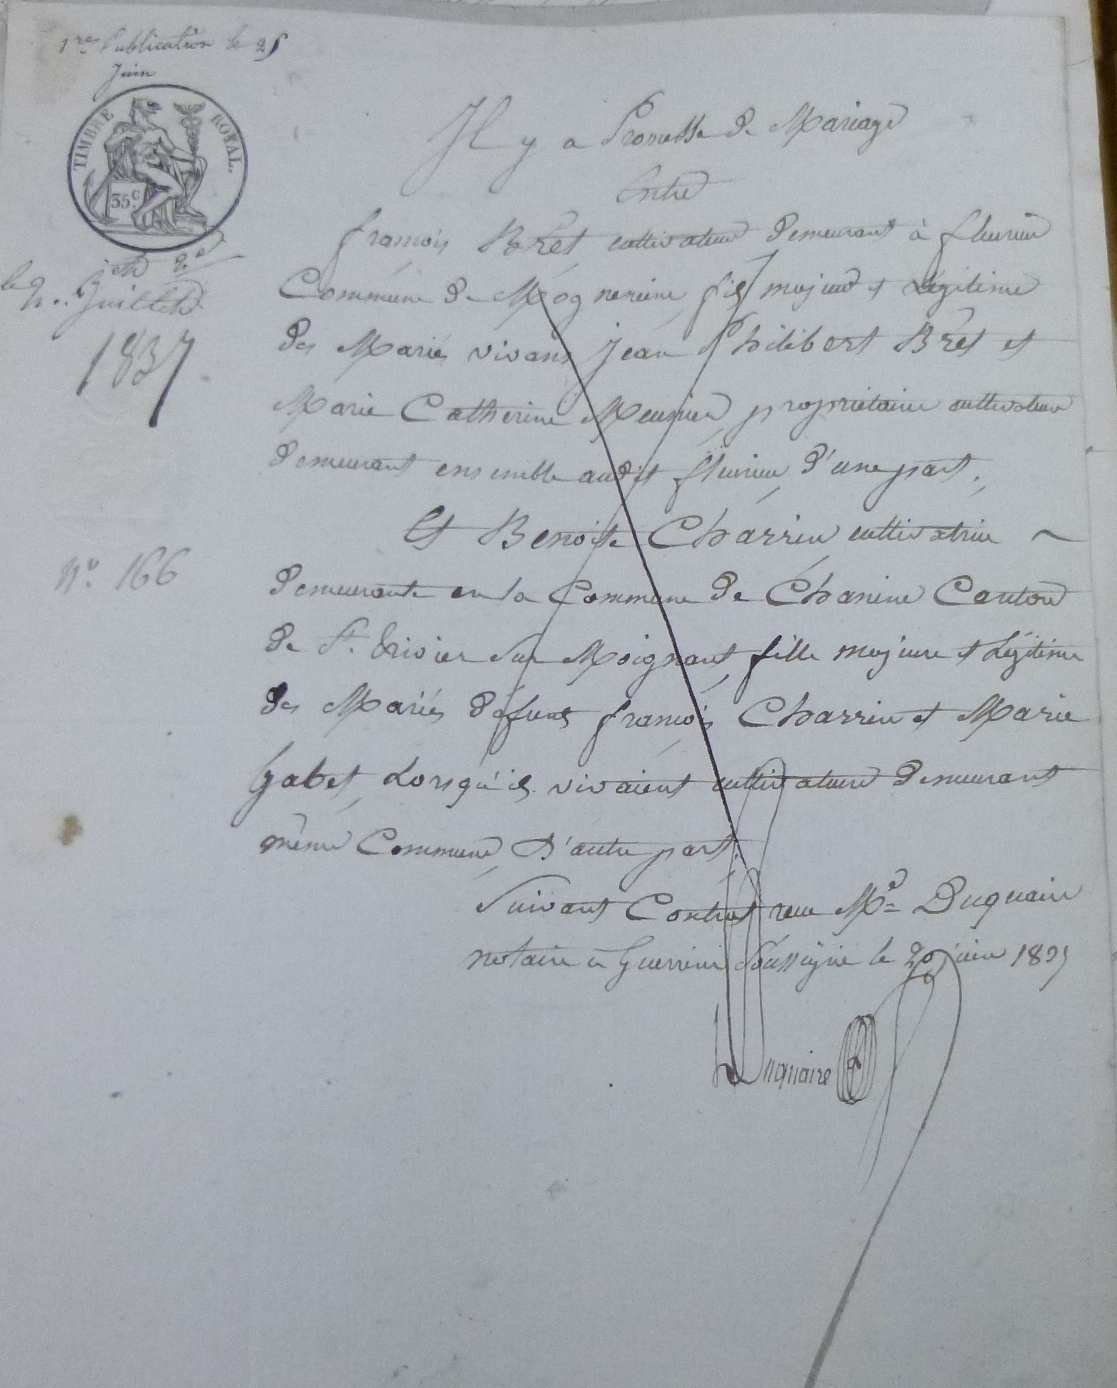 1re Publication le 25
Juin
TIMBRE ROYAL.
35 C
id. 2e
le 2. Juillet
1837
No. 166
Il y a Promesse de Mariage
Entre
françois Brêt, cultivateur demeurant à fleurieu
Commune de Mogneneins, fils majeur et Légitime
des Mariés vivans Jean Philibert Brêt et
Marie Catherine Meunier, propriétaire cultivateur
demeurant ensemble audit fleurieu, d'une part,
Et Benoite Charrin cultivatrice
demeurante en la Commune de Chaneins Canton
de St. Trivier sur Moignans, fille majeure et Légitime
des Mariés défunts françois Charrin et Marie
Gabet, Lorsqu'ils vivaient cultivateurs demeurant
même Commune, D'autre part,
Suivant Contrat reçu Me Duquaire
notaire à Guerreins Soussigné le 20 juin 1837
Duquaire